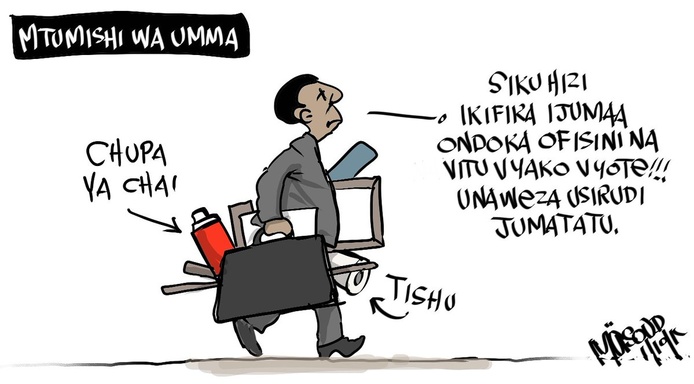 MTUMISHI WA UMMA
SIKU HIZI
IKIFIKA IJUMAA
ONDOKA OFISINI NA
VITU VYAKO VYOTE!!!
UNAWEZA USIRUDI
JUMATATU.
CHUPA
YA CHAI
TISHU
MASOUD